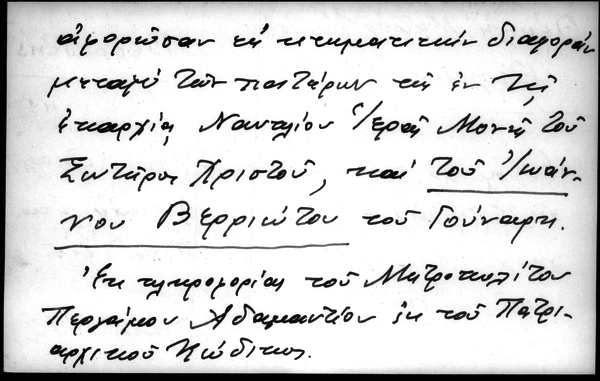 ἀφορῶσαν τὴ κτηματικὴν διαφορὰν
μεταξὺ τῶν πατέρων τῆς ἐν τῇ
ἐπαρχίᾳ Ναυπλίου Ἱερᾶς Μονῆς τοῦ
Σωτῆρος Χριστοῦ, καὶ τοῦ Ἰωάν-
νου Βερριώτου τοῦ Γούναρη.
Ἐκ πληροφορίας τοῦ Μητροπολίτου
Περγάμου Ἀδαμαντίου ἐκ τοῦ Πατρι-
αρχικοῦ Κώδικος.